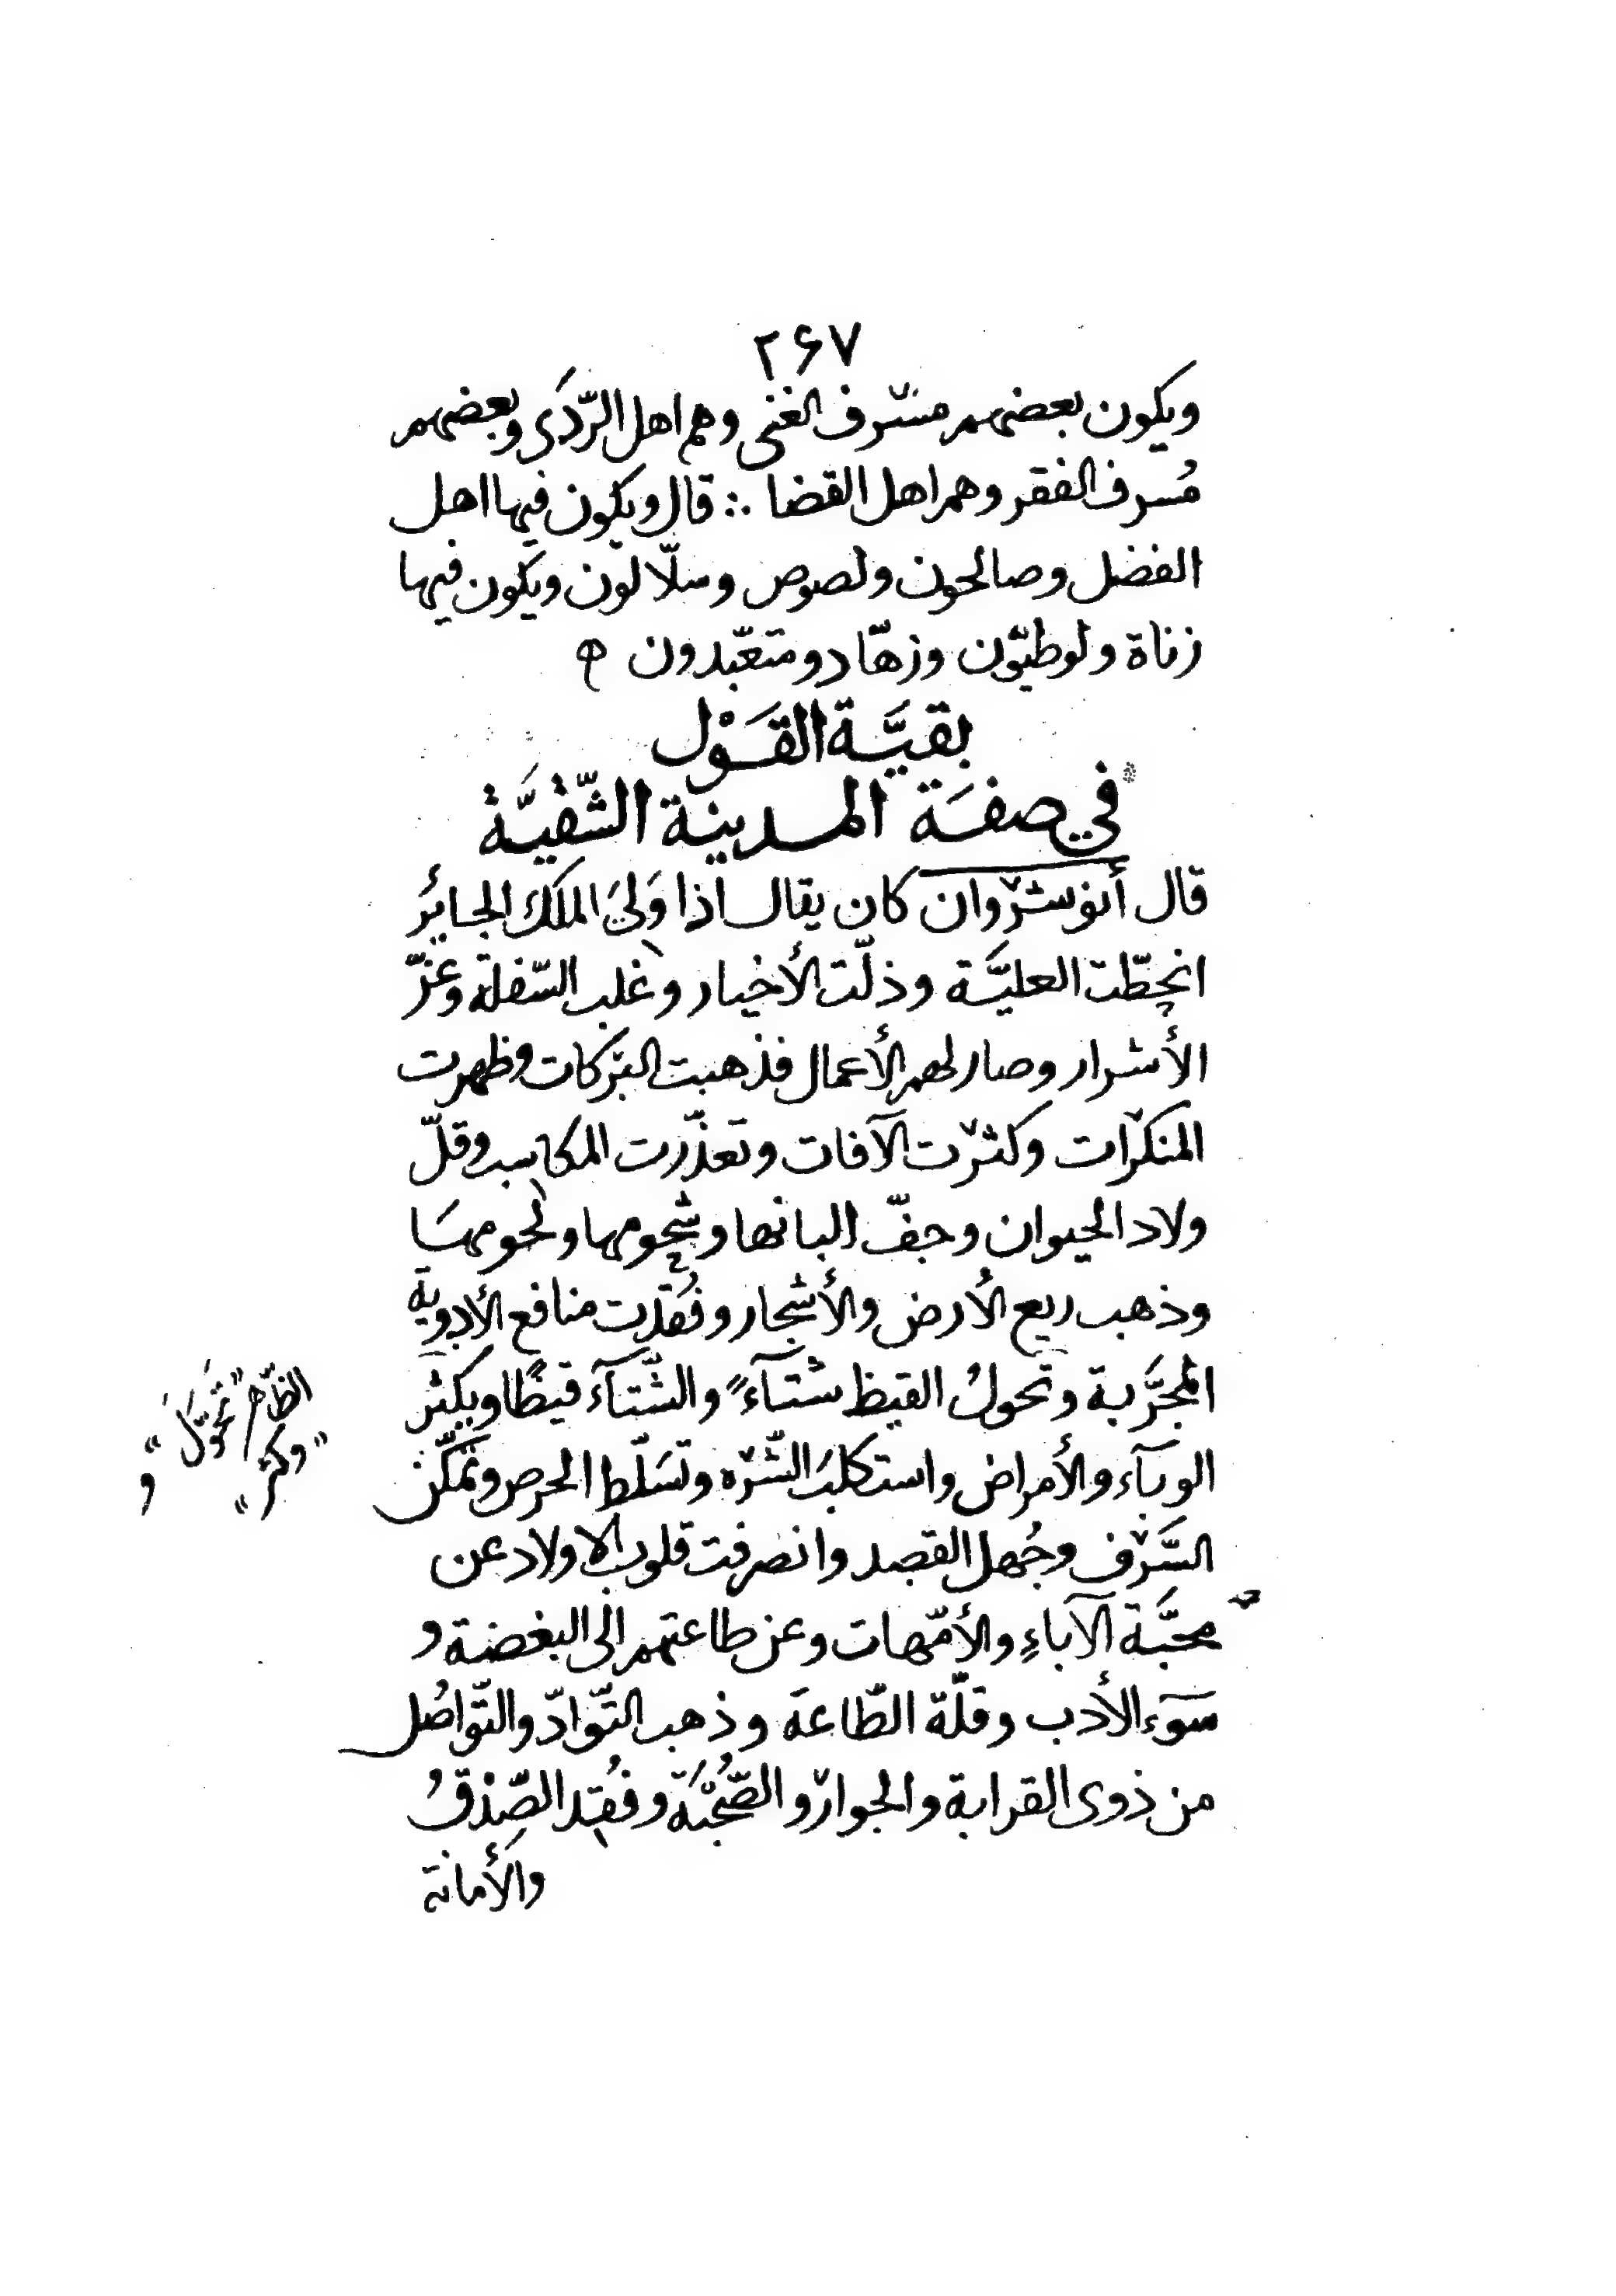 ۲۶۷
ويكون بعضهم مسرف الغنى وهم اهل الرّدَى وبعضهم
مُسرف الفقر وهم اهل القضا ∴ قال ويكون فيها اهل
الفضل وصالحون ولصوص وسلّالون ويكون فيها
زناة ولوطيّون وزهّاد ومتعّبدون
بقيَّة القَوْل
في صفَة المدينة الشّقيَّة
قال أنوشروان كان يقال اذا وَلىَ الملك الجائرُ
انحطّت العليَّة وذلّت الأخيار وغلب السّفلة وعزّ
الأشرار وصار لهم الأعمال فذهبت البركات وظهرت
المنكرات وكثرت الآفات وتعذّرت المكاسب وقلّ
ولاد الحيوان وجفّ البانها وشحومها ولحومهَا
وذهب ريع الأرض والأشجار وفُقدت منافع الأدوية
المجرَّبة وتحولُ القيظ شتآءً والشّتآء قيظًا ويكثر
الظّاهر "تحَوَّلَ" و
"وكثر"
الوبآء والأمراض واستكلبَ الشّره وتسَلّط الحرص وتمَكّن
السَّرف وجُهل القصد وانصرفت قلوب الاولاد عن
محبَّة الآباءِ والأمّهات وعن طاعتهم الى البغضة و
سَوء الأدب وقلّة الطّاعة وذهب التّوادّ والتّواصُل
من ذوى القرابة والجوار والصُّحْبَة وفُقِد الصّدْقُ
والأمانة